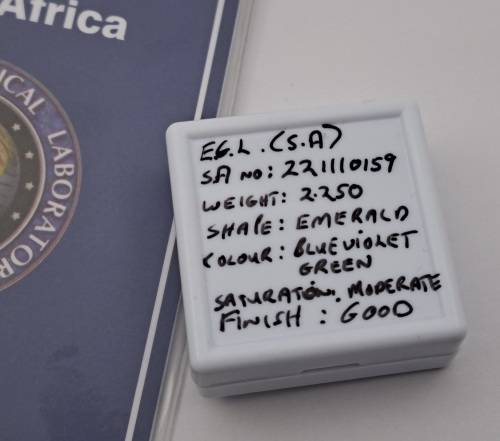 Africa
ICAL LABORATOR
EG.L. (S.A)
SA NO: 221110159
WEIGHT: 2.250
SHAPE: EMERALD
COLOUR: BLUEVIOLET
GREEN
SATURATION. MODERATE
FINISH : GOOD